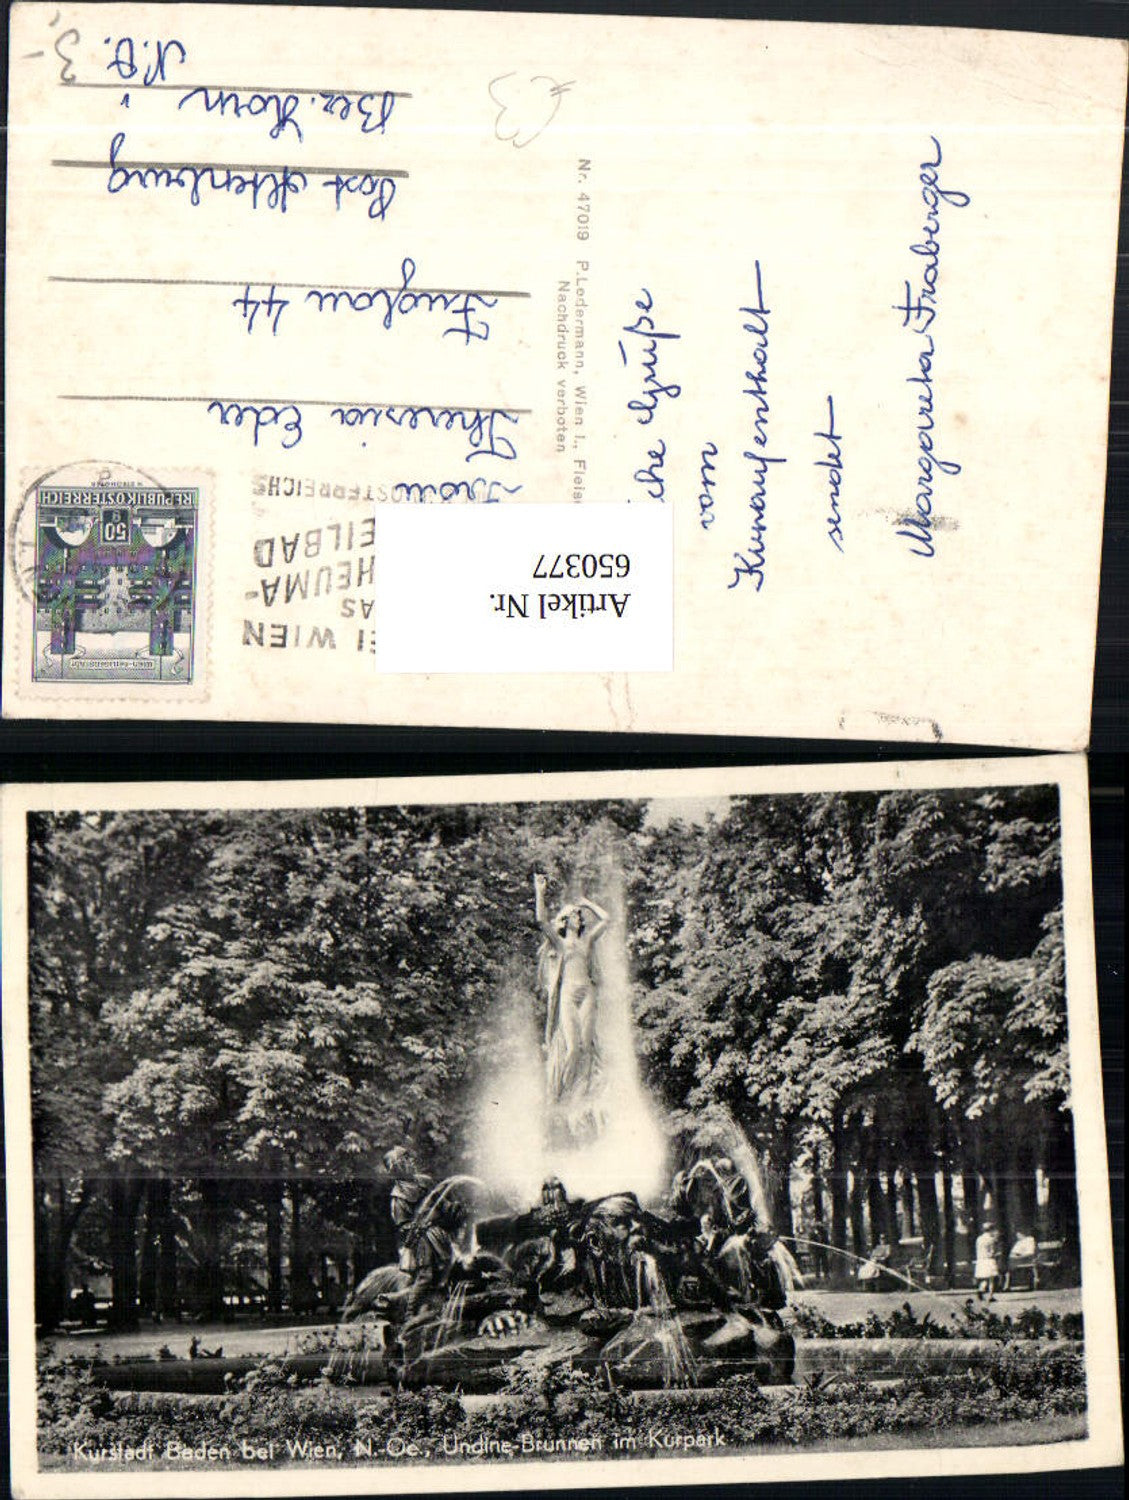 3,-
€3
N.Ö.
Bez. Horn
Post Altenburg
Fuglau 44
Theresia Eder
Frau
REPUBLIK ÖSTERREICH
50 g
WIEN-HEILIGENSTADT
EI WIEN
AS
HEUMA-
EILBAD
ÖSTERREICHS
Artikel Nr.
650377
Nr. 47019 P. Ledermann, Wien I., Fleis
Nachdruck verboten
iche Grüße
vom
Kuraufenthalt
sendet
Margareta Fraberger
Kurstadt Baden bei Wien, N.-Oe., Undine-Brunnen im Kurpark